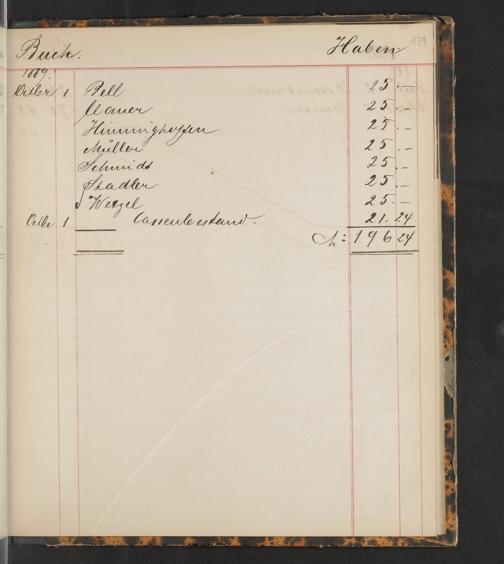 Buch. Haben 139
1889.
Octbr 1 Bell 25.—
Mauer 25.—
Himminghofen 25.—
Müller 25.—
Schmidt 25.—
Stadler 25.—
Wetzel 25.—
Octbr 1 Cassenbestand. 21.24
196 24